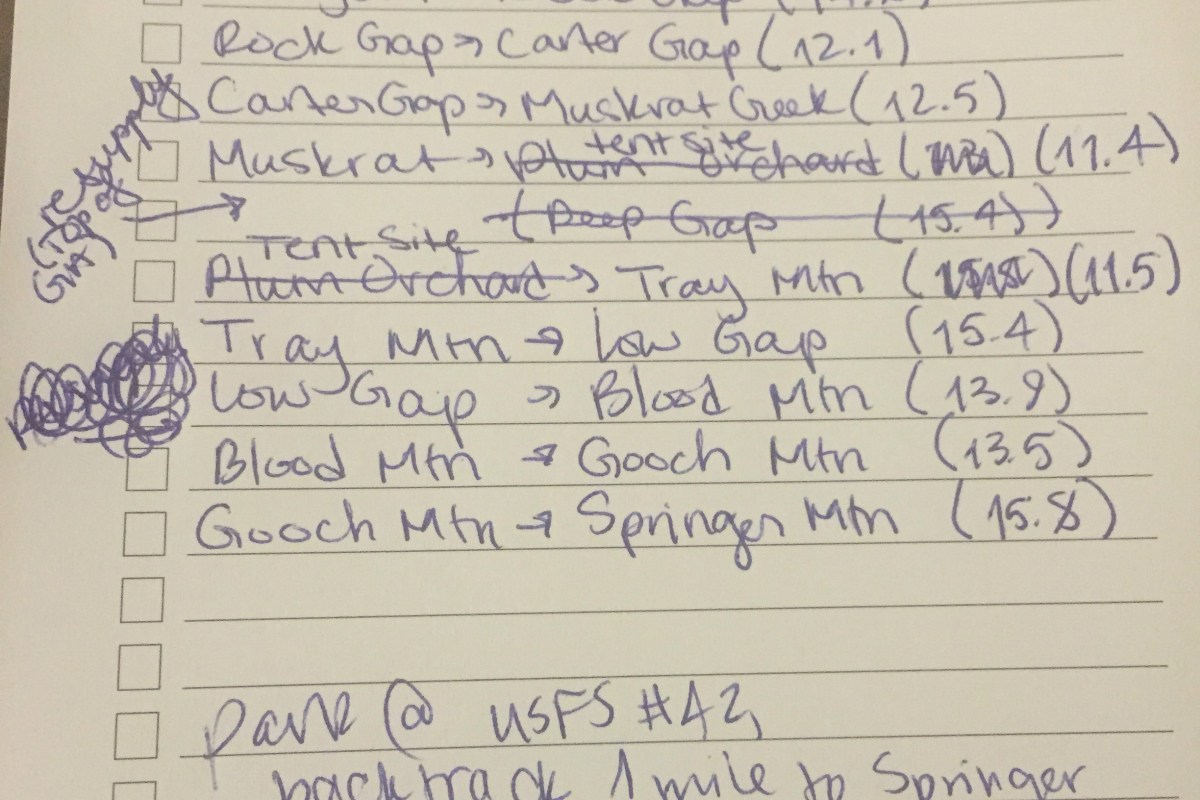 Rock Gap → Carter Gap (12.1)
Carter Gap → Muskrat Creek (12.5)
resupply
(TOP OF GA)
tent site
Muskrat → Plum Orchard (11.4)
(Deep Gap (15.4))
Tent Site
Plum Orchard → Tray Mtn (11.5)
Tray Mtn → Low Gap (15.4)
Low Gap → Blood Mtn (13.9)
Blood Mtn → Gooch Mtn (13.5)
Gooch Mtn → Springer Mtn (15.8)
park @ USFS #42,
backtrack 1 mile to Springer